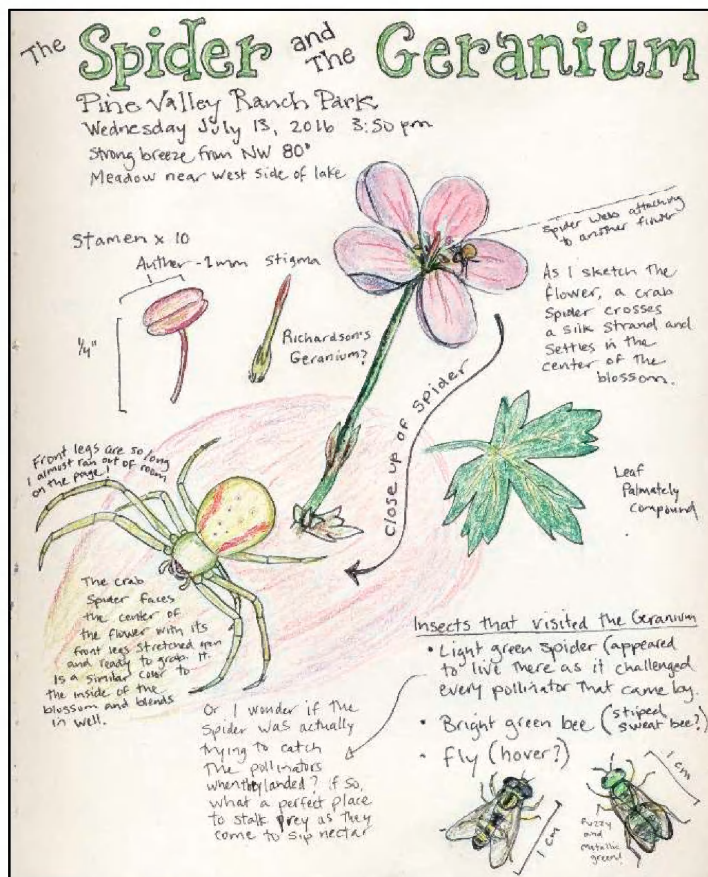 The Spider and The Geranium
Pine Valley Ranch Park
Wednesday July 13, 2016 3:50 pm
Strong breeze from NW 80°
Meadow near west side of lake
Stamen x 10
Anther - 2mm
stigma
1/4"
Richardson's
Geranium?
Spider webs attaching
to another flower
As I sketch the
flower, a crab
Spider crosses
a silk strand and
Settles in the
center of the
blossom.
Close up of Spider
Leaf
Palmately
compound
Front legs are so long
I almost ran out of room
on the page!
The crab
Spider faces
the center of
the flower with its
front legs stretched open
and ready to grab. It
Is a similar color to
the inside of the
blossom and blends
in well.
Or I wonder if the
Spider was actually
trying to catch
The pollinators
when they landed? If so,
what a perfect place
to stalk prey as they
come to sip nectar
Insects that visited the Geranium
• Light green spider (appeared
to live there as it challenged
every pollinator that came by.
• Bright green bee (stiped
sweat bee?)
• Fly (hover?)
1 cm
1 cm
Fuzzy
and
Metallic
green!